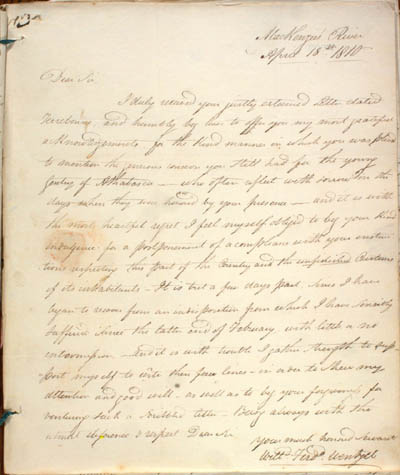 MacKenzies River
April 18th 1810
Dear Sir
I duly received your justly esteemed letter dated
Terrebonne and humbly beg leave to offer you my most grateful
acknowledgements for the kind manner in which you was pleased
to mention the generous concern you still had for the young
gentry of Athabasca — who often reflect with sorrow on the
days when they were honored by your presence — and it is with
the most heartful regret I feel myself obliged to beg your kind
indulgence for a postponement of a compliance with your
respecting this part of the Country and the unpolished Customs
of its inhabitants — It is but a few days past, since I have
began to recover from an indisposition from which I have
suffered since the latter end of February with little or no
intermission — and it is with trouble I gather strength to sup-
port myself to write these few lines — in order to shew my
attention and good will, as well as to beg your forgiveness for
venturing such a letter — Being always with the
utmost deference & respect Dear Sir
your much honored Servant
Willd. Ferdd. Wentzel